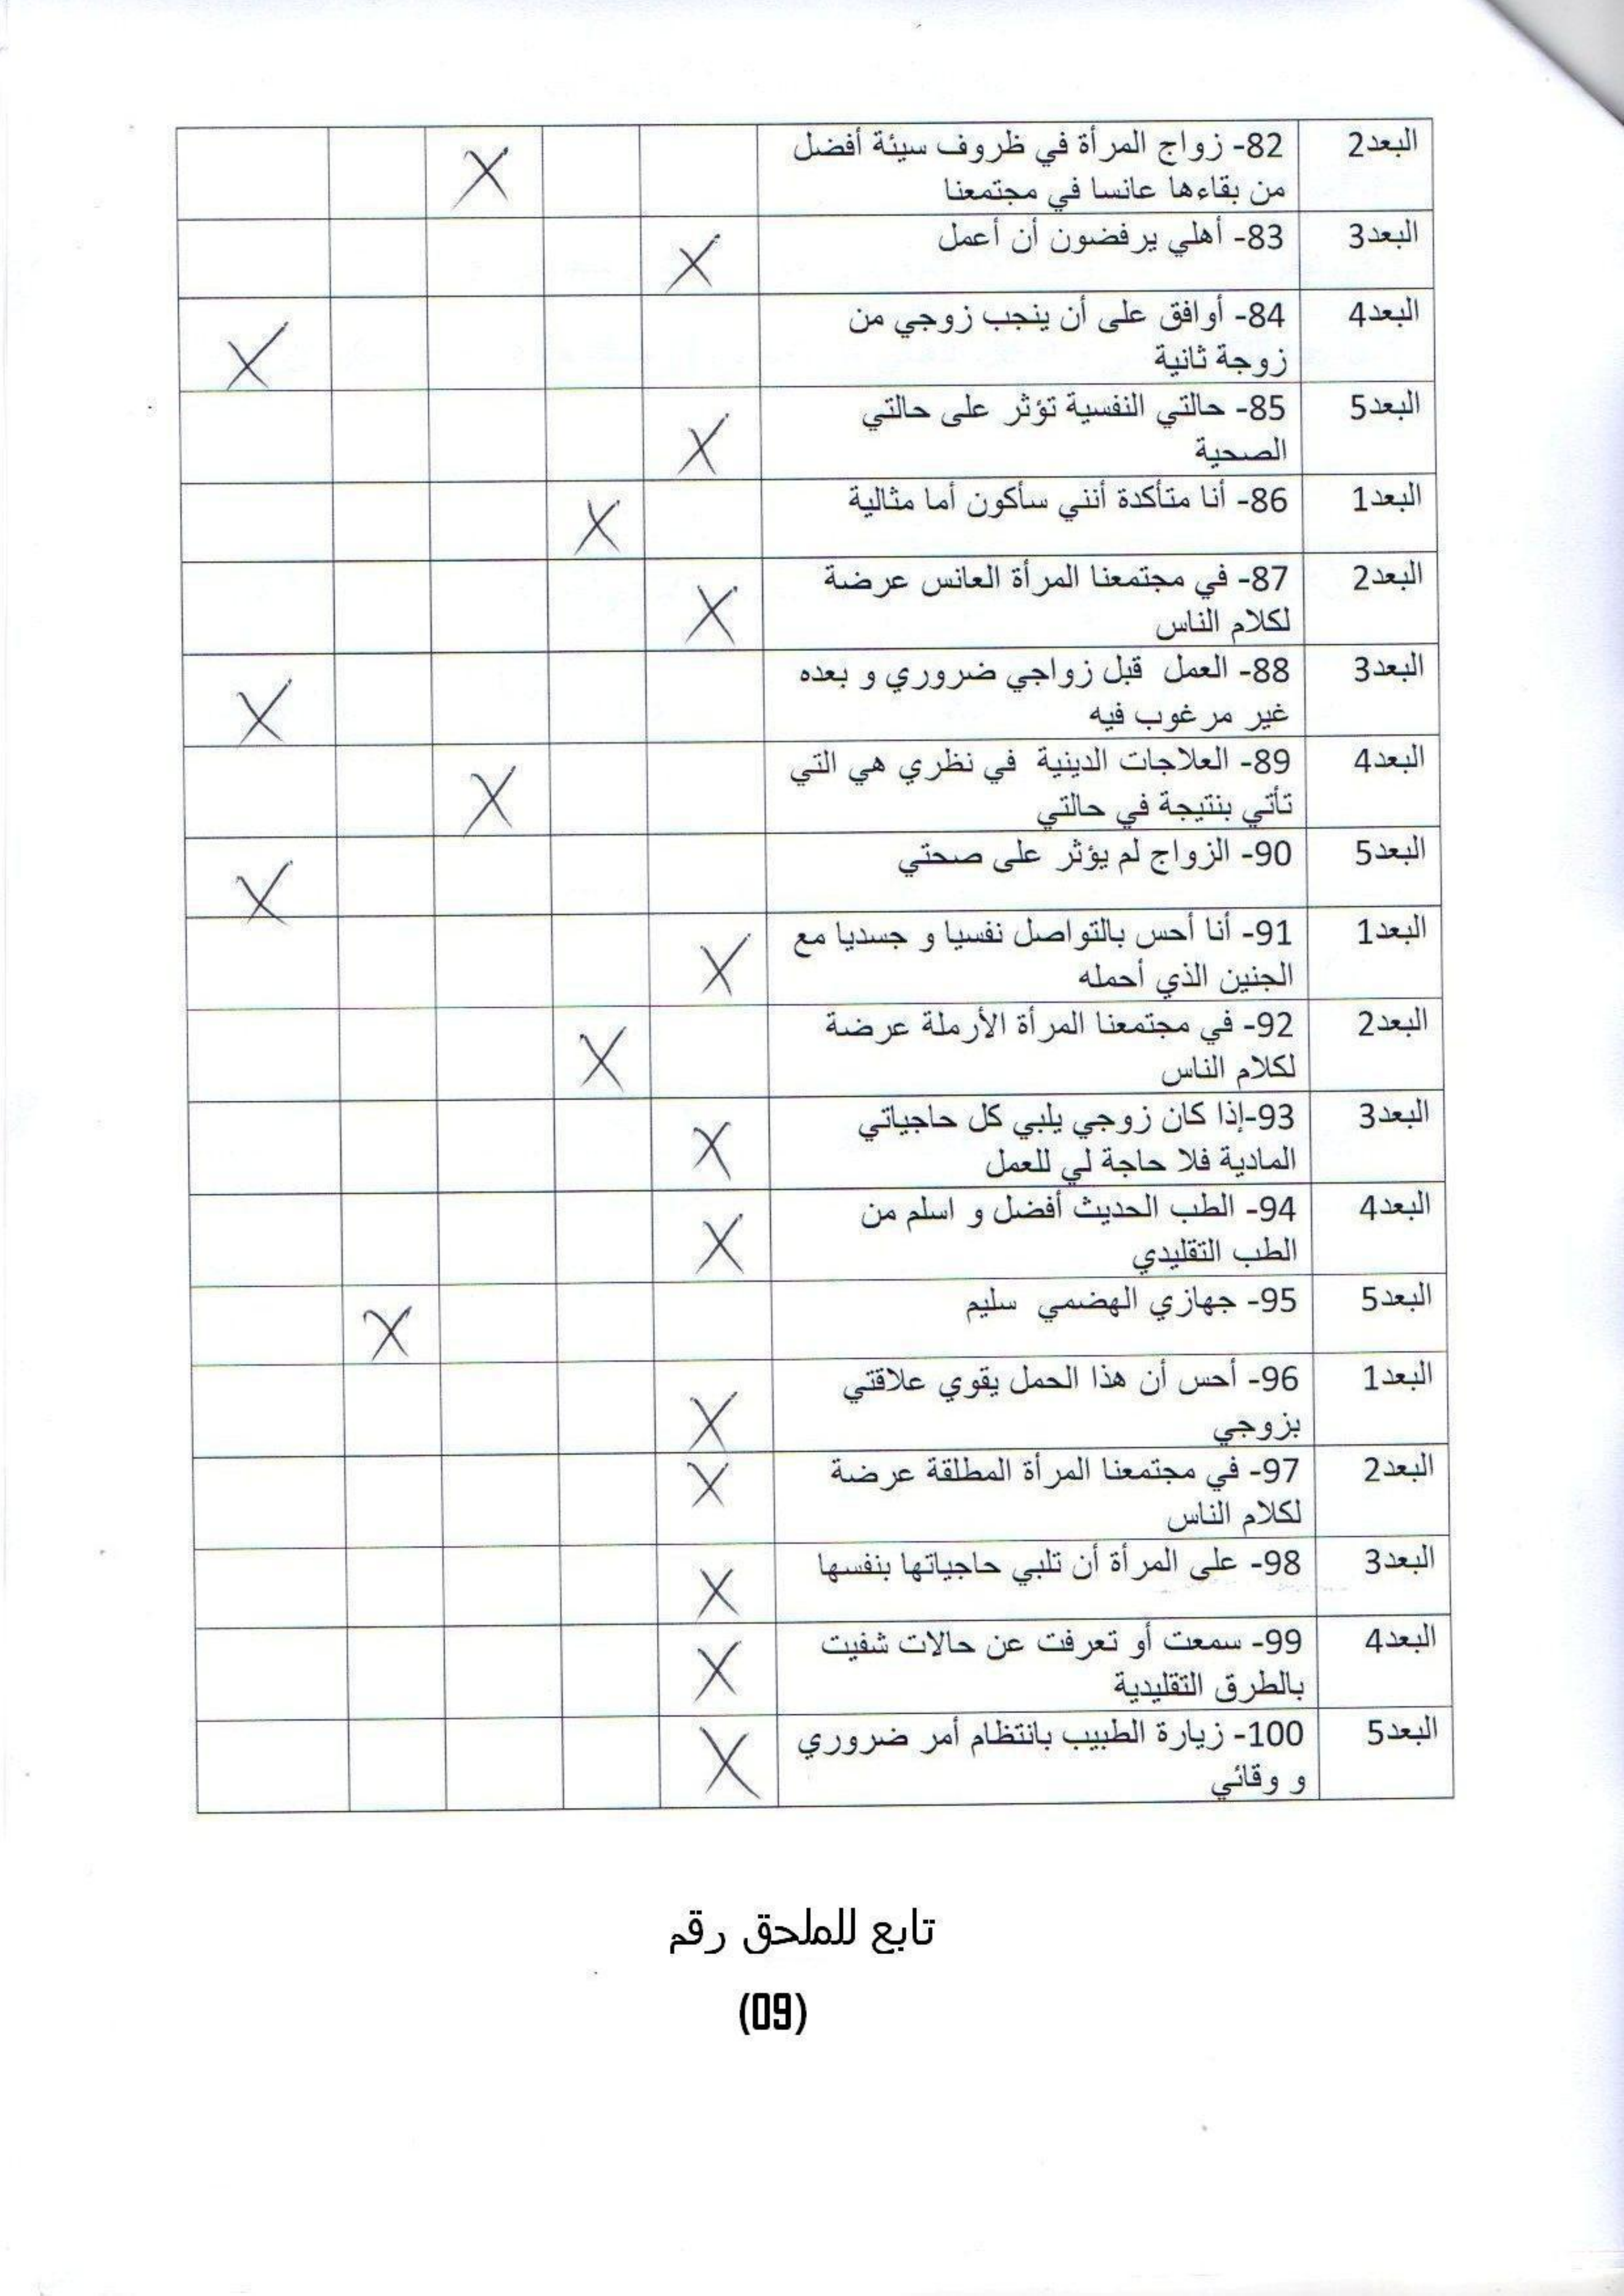 البعد2 82- زواج المرأة في ظروف سيئة أفضل
من بقاءها عانسا في مجتمعنا X
البعد3 83- أهلي يرفضون أن أعمل X
البعد4 84- أوافق على أن ينجب زوجي من
زوجة ثانية X
البعد5 85- حالتي النفسية تؤثر على حالتي
الصحية X
البعد1 86- أنا متأكدة أنني سأكون أما مثالية X
البعد2 87- في مجتمعنا المرأة العانس عرضة
لكلام الناس X
البعد3 88- العمل قبل زواجي ضروري و بعده
غير مرغوب فيه X
البعد4 89- العلاجات الدينية في نظري هي التي
تأتي بنتيجة في حالتي X
البعد5 90- الزواج لم يؤثر على صحتي X
البعد1 91- أنا أحس بالتواصل نفسيا و جسديا مع
الجنين الذي أحمله X
البعد2 92- في مجتمعنا المرأة الأرملة عرضة
لكلام الناس X
البعد3 93-إذا كان زوجي يلبي كل حاجياتي
المادية فلا حاجة لي للعمل X
البعد4 94- الطب الحديث أفضل و اسلم من
الطب التقليدي X
البعد5 95- جهازي الهضمي سليم X
البعد1 96- أحس أن هذا الحمل يقوي علاقتي
بزوجي X
البعد2 97- في مجتمعنا المرأة المطلقة عرضة
لكلام الناس X
البعد3 98- على المرأة أن تلبي حاجياتها بنفسها X
البعد4 99- سمعت أو تعرفت عن حالات شفيت
بالطرق التقليدية X
البعد5 100- زيارة الطبيب بانتظام أمر ضروري
و وقائي X
تابع للملحق رقم
(09)